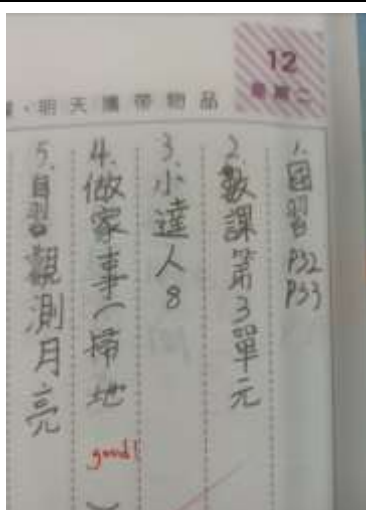 12
星期二
明天攜帶物品
1.國習P32
P33
2.數課第3單元
3.小達人8
4.做家事(掃地
good!
)
5.自習觀測月亮